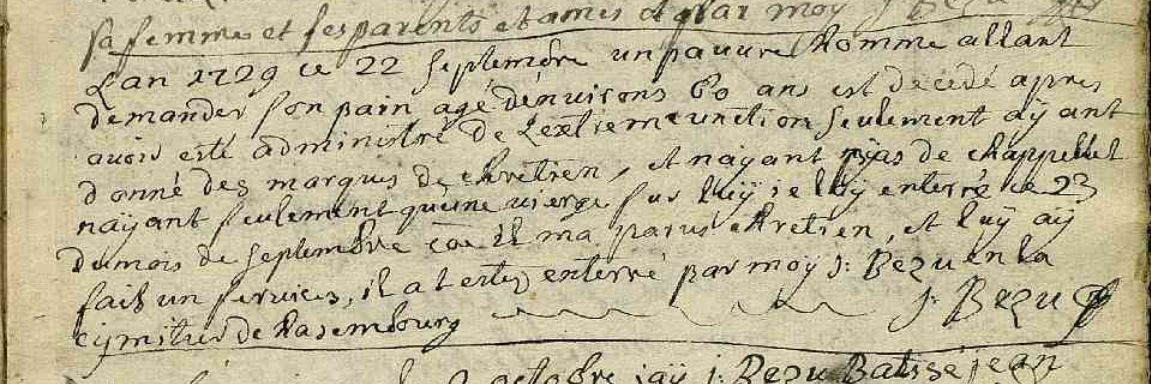 sa femme et ses parents et amis et par moy J: Bezu
Lan 1729 ce 22 septembre un pauvre homme allant
demander son pain agé denvirons 60 ans est decedé apres
avoir esté administré de Lextremeunction seulement aÿant
donné des marques de chretien, et naÿant pas de chappellet
naÿant seulement quune vierge sur luÿ je laÿ enterré ce 23
du mois de septembre il ma parus chretien, et luÿ aÿ
fait un services, il at estez enterré par moÿ J: Bezu en la
cijmitier de Rasembourg J: Bezu
octobre jaÿ J: Bezu Batisé jean